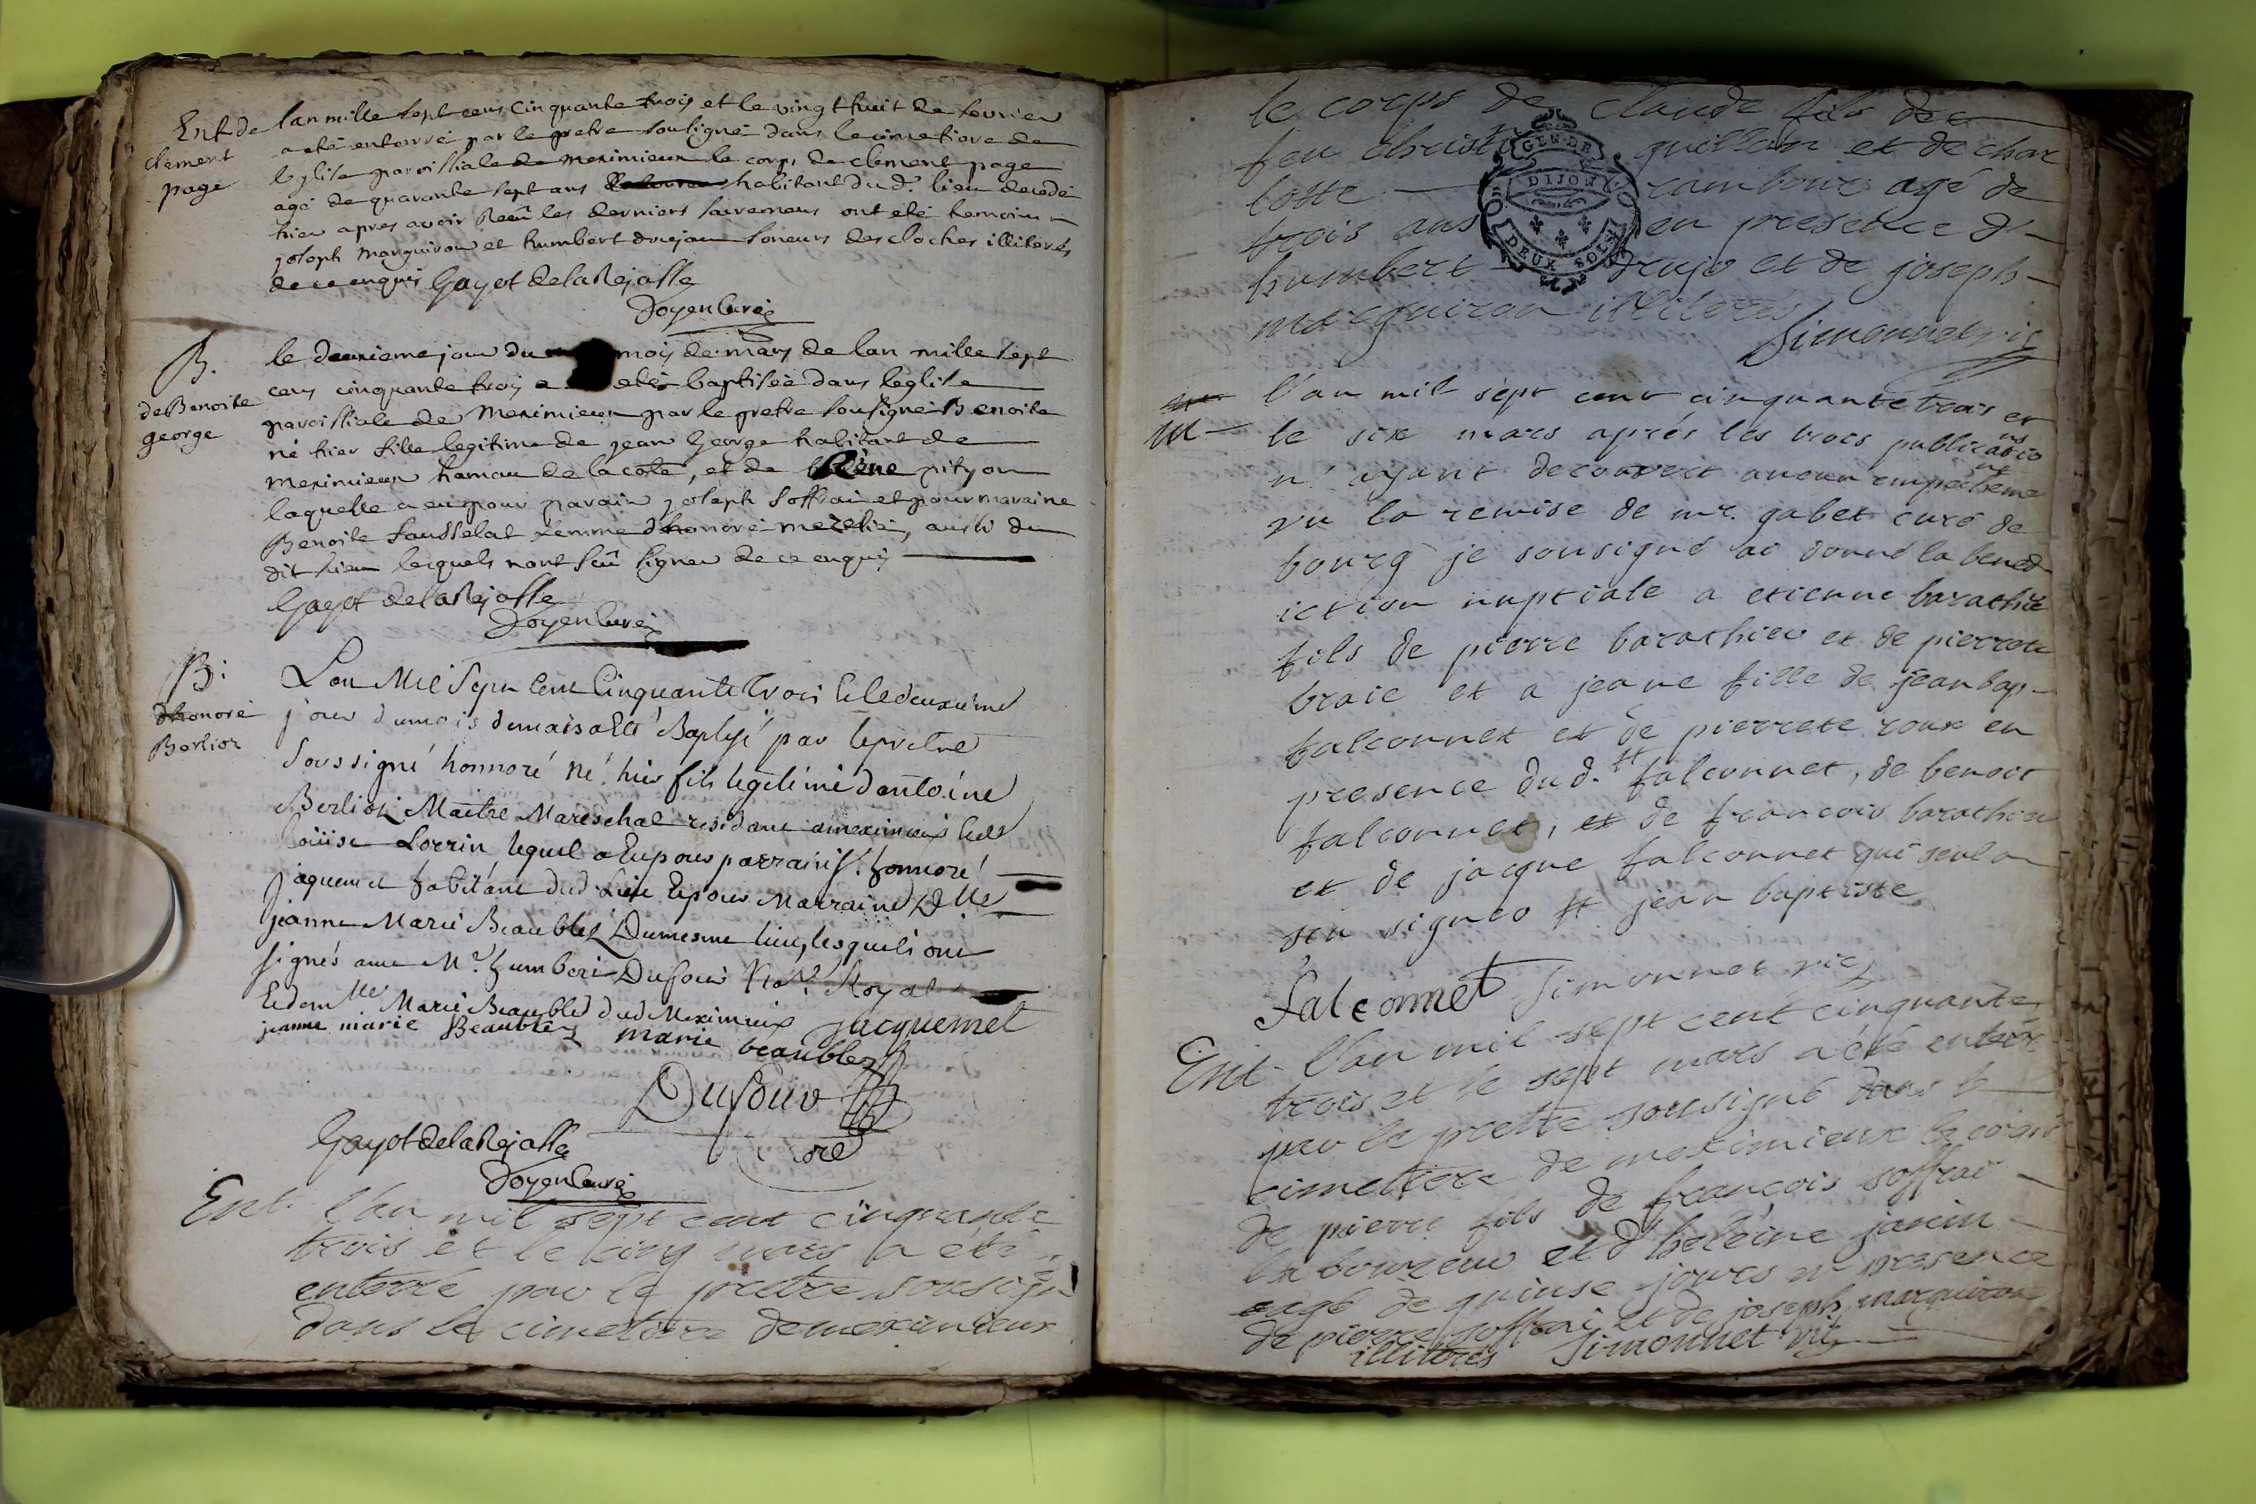 Ent de
clement
page
lan mille sept cens cinquante trois et le vingt huit de fevrier
a eté enterré par le pretre soussigné dans le cimetiere de
leglise paroissiale de meximieux le corps de clement page
agé de quarante sept ans habitant du d. lieu decedé
hier apres avoir Receû les derniers sacremens ont eté temoins
joseph marguiron et humbert drujon soneurs des cloches illiterés
de ce enquis Gayot de la Rejasse
Doyen Curé
B.
de Benoite
george
le deuxieme jour du mois de mars de lan mille sept
cens cinquante trois a eté baptisée dans leglise
paroissiale de Meximieux par le pretre soussigné Benoite
né hier fille legitime de jean george habitant de
meximieux hameau de la cote, et de pityon
laquelle a eu pour parain joseph soffrai et pour maraine
Benoite femme dhonoré aussi du
dit lieu lesquels nont sceû signer de ce enquis
Gayot de la Rejasse
Doyen Curé
B:
dhonoré
Berlioz
Lan Mil Sept Cent Cinquante Trois & le deuxieme
jour dumois demars a Eté Baptisé par le pretre
Soussigné honnoré né hier fils legitime d'antoine
Berlioz Maitre Mareschal residant a meximieux & de
Louise Lorrin lequel a Eu pour parrain sr. honnoré
jaquemet habitant dud. Lieu & pour Marraine Dlle
jeanne Marie Beaublez Dumesme lieu, lesquels ont
signés avec Mr. humbert Dufour No.re Royal
& dem.lle Marie Beaubled dud Meximieux
jeanne marie Beaublez marie beaublez jacquemet
Dufour
Gayot de la Rejasse
Doyen Curé
Ent. l'an mil sept cent cinquante
trois et le cinq mars a été
enterré par le pretre sousigné
dans le cimetiere de meximieux
le corps de claude fils de
feu christ quillon et de char
lotte rambour agé de
trois ans en presence d'
humbert drujo et de joseph
marguiron illiterés
Simonnet vic
M
l'an mil sept cent cinquante trois et
le six mars aprés les trois publications
n'ayant decouvert aucun empechement
vu la remise de mr. gabet curé de
bourg je sousigné ai donné la bened
iction nuptiale a etienne barathie
fils de pierre barathieu et de pierrete
braie et a jeane fille de jean bap-
falconnet et de pierrete roux en
presence dud. # falconnet, de benoit
falconnet, et de francois barathieu
et de jacque falconnet qui seul a
seu signer # jean baptiste
falconnet Simonnet vic
Ent. l'an mil sept cent cinquante
trois et le sept mars a été enterr
par le prettre sousigné dans le
cimettiere de meximieux le corps
de pierre fils de françois soffrai
laboureur et d'heleine janin
agé de quinse jours en presence
de pierre soffrai et de joseph marguiron
illiterés Simonnet vic
GEN. DE
DIJON
DEUX SOLS